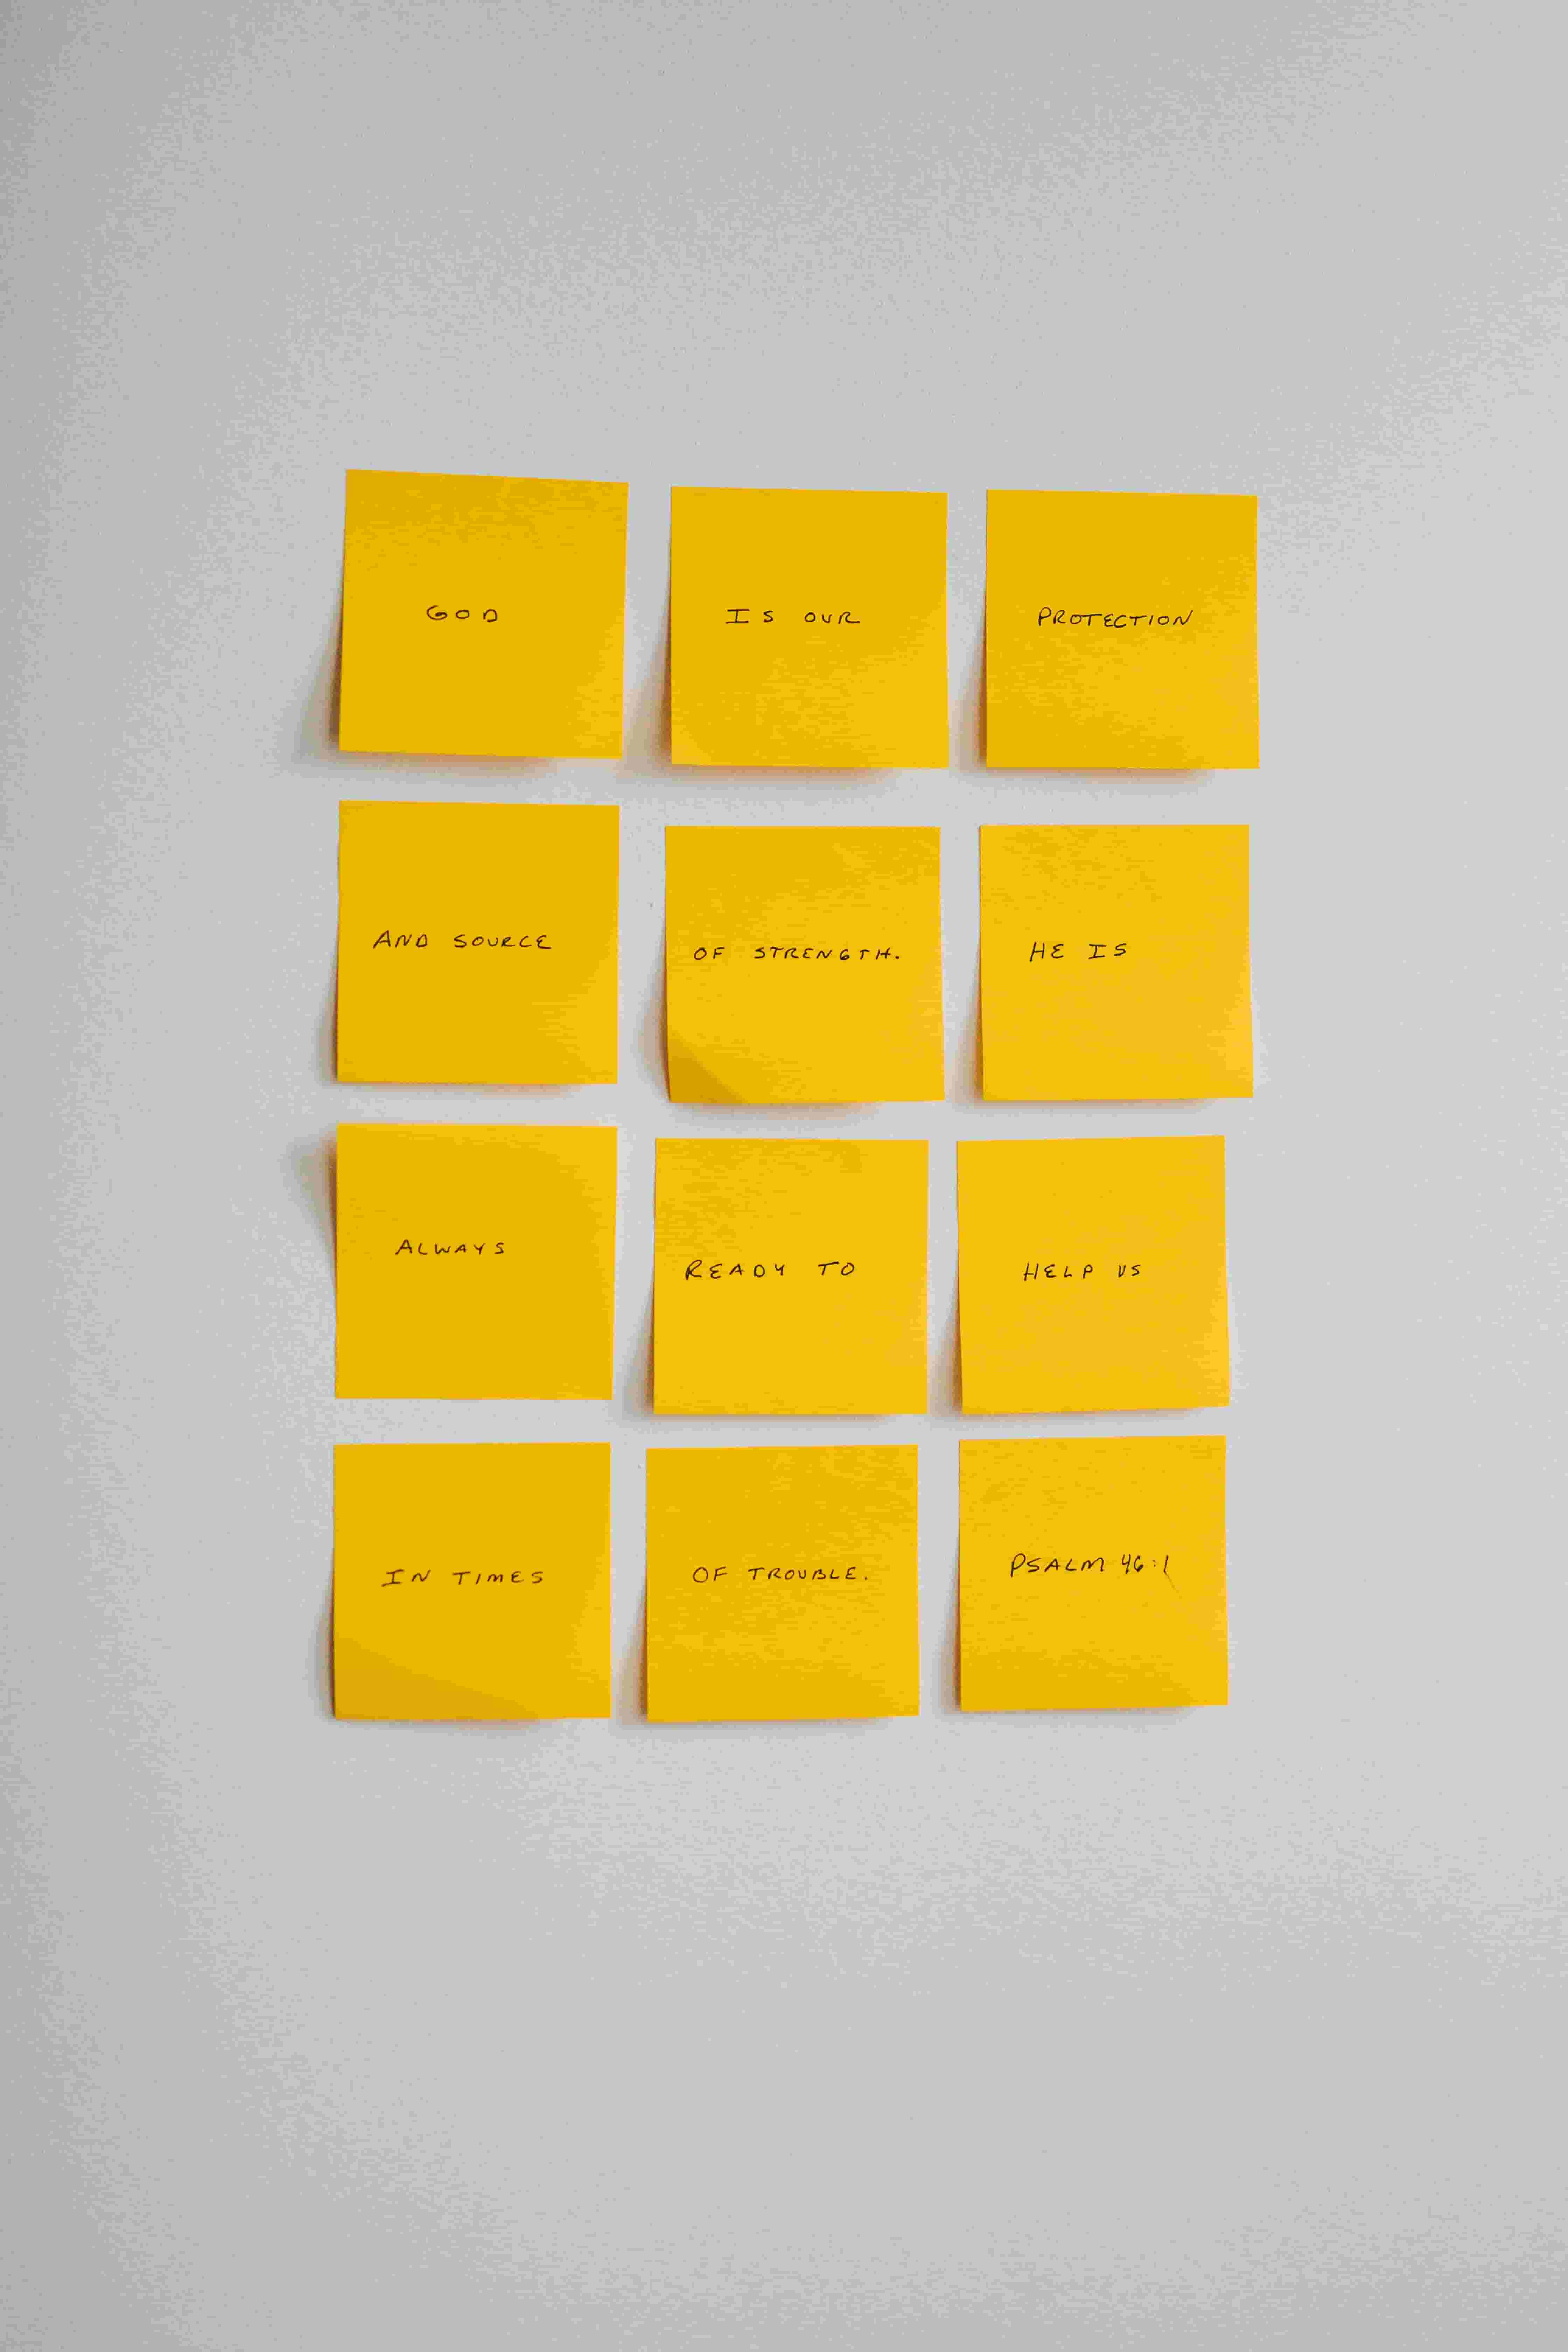 GOD
IS OUR
PROTECTION
AND SOURCE
OF STRENGTH.
HE IS
ALWAYS
READY TO
HELP US
IN TIMES
OF TROUBLE.
PSALM 46:1